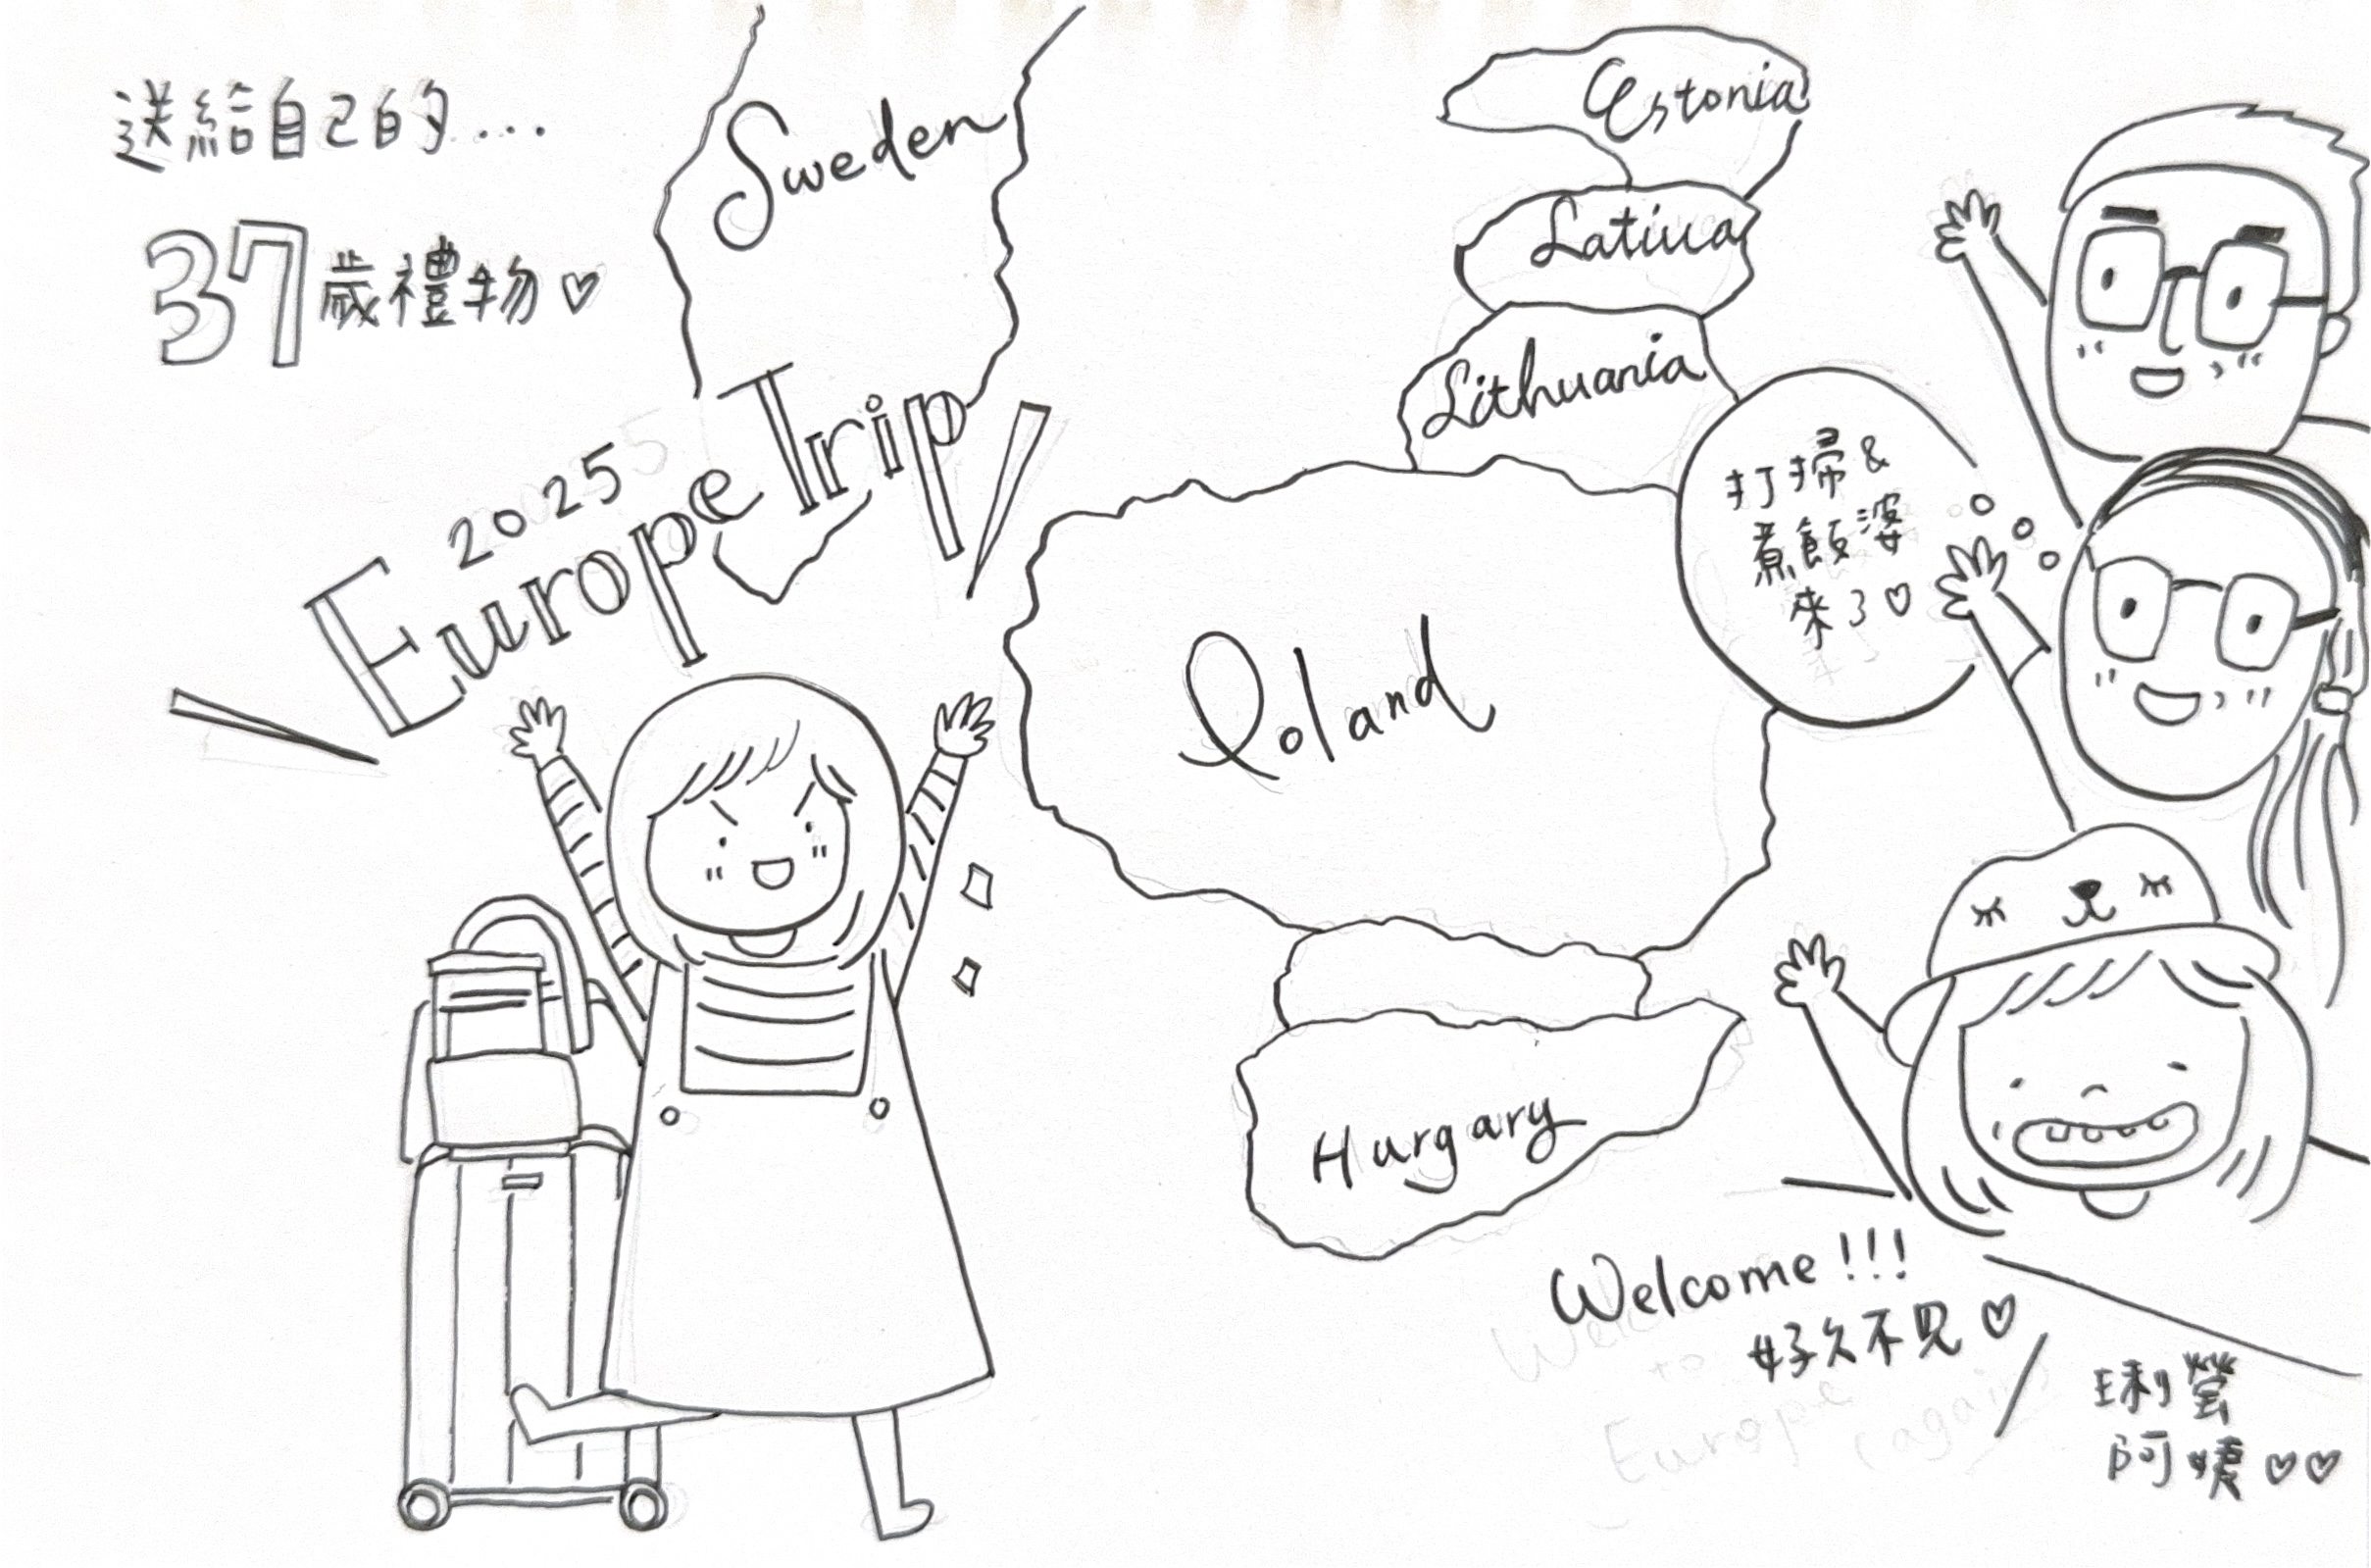 送給自己的...
37歲禮物♡
Sweden
2025
Europe Trip
Estonia
Latiua
Lithuania
打掃&
煮飯婆
來了♡
Poland
Hurgary
Welcome!!!
好久不見♡
琍瑩
阿姨♡♡
Welc
to
Europe
(again